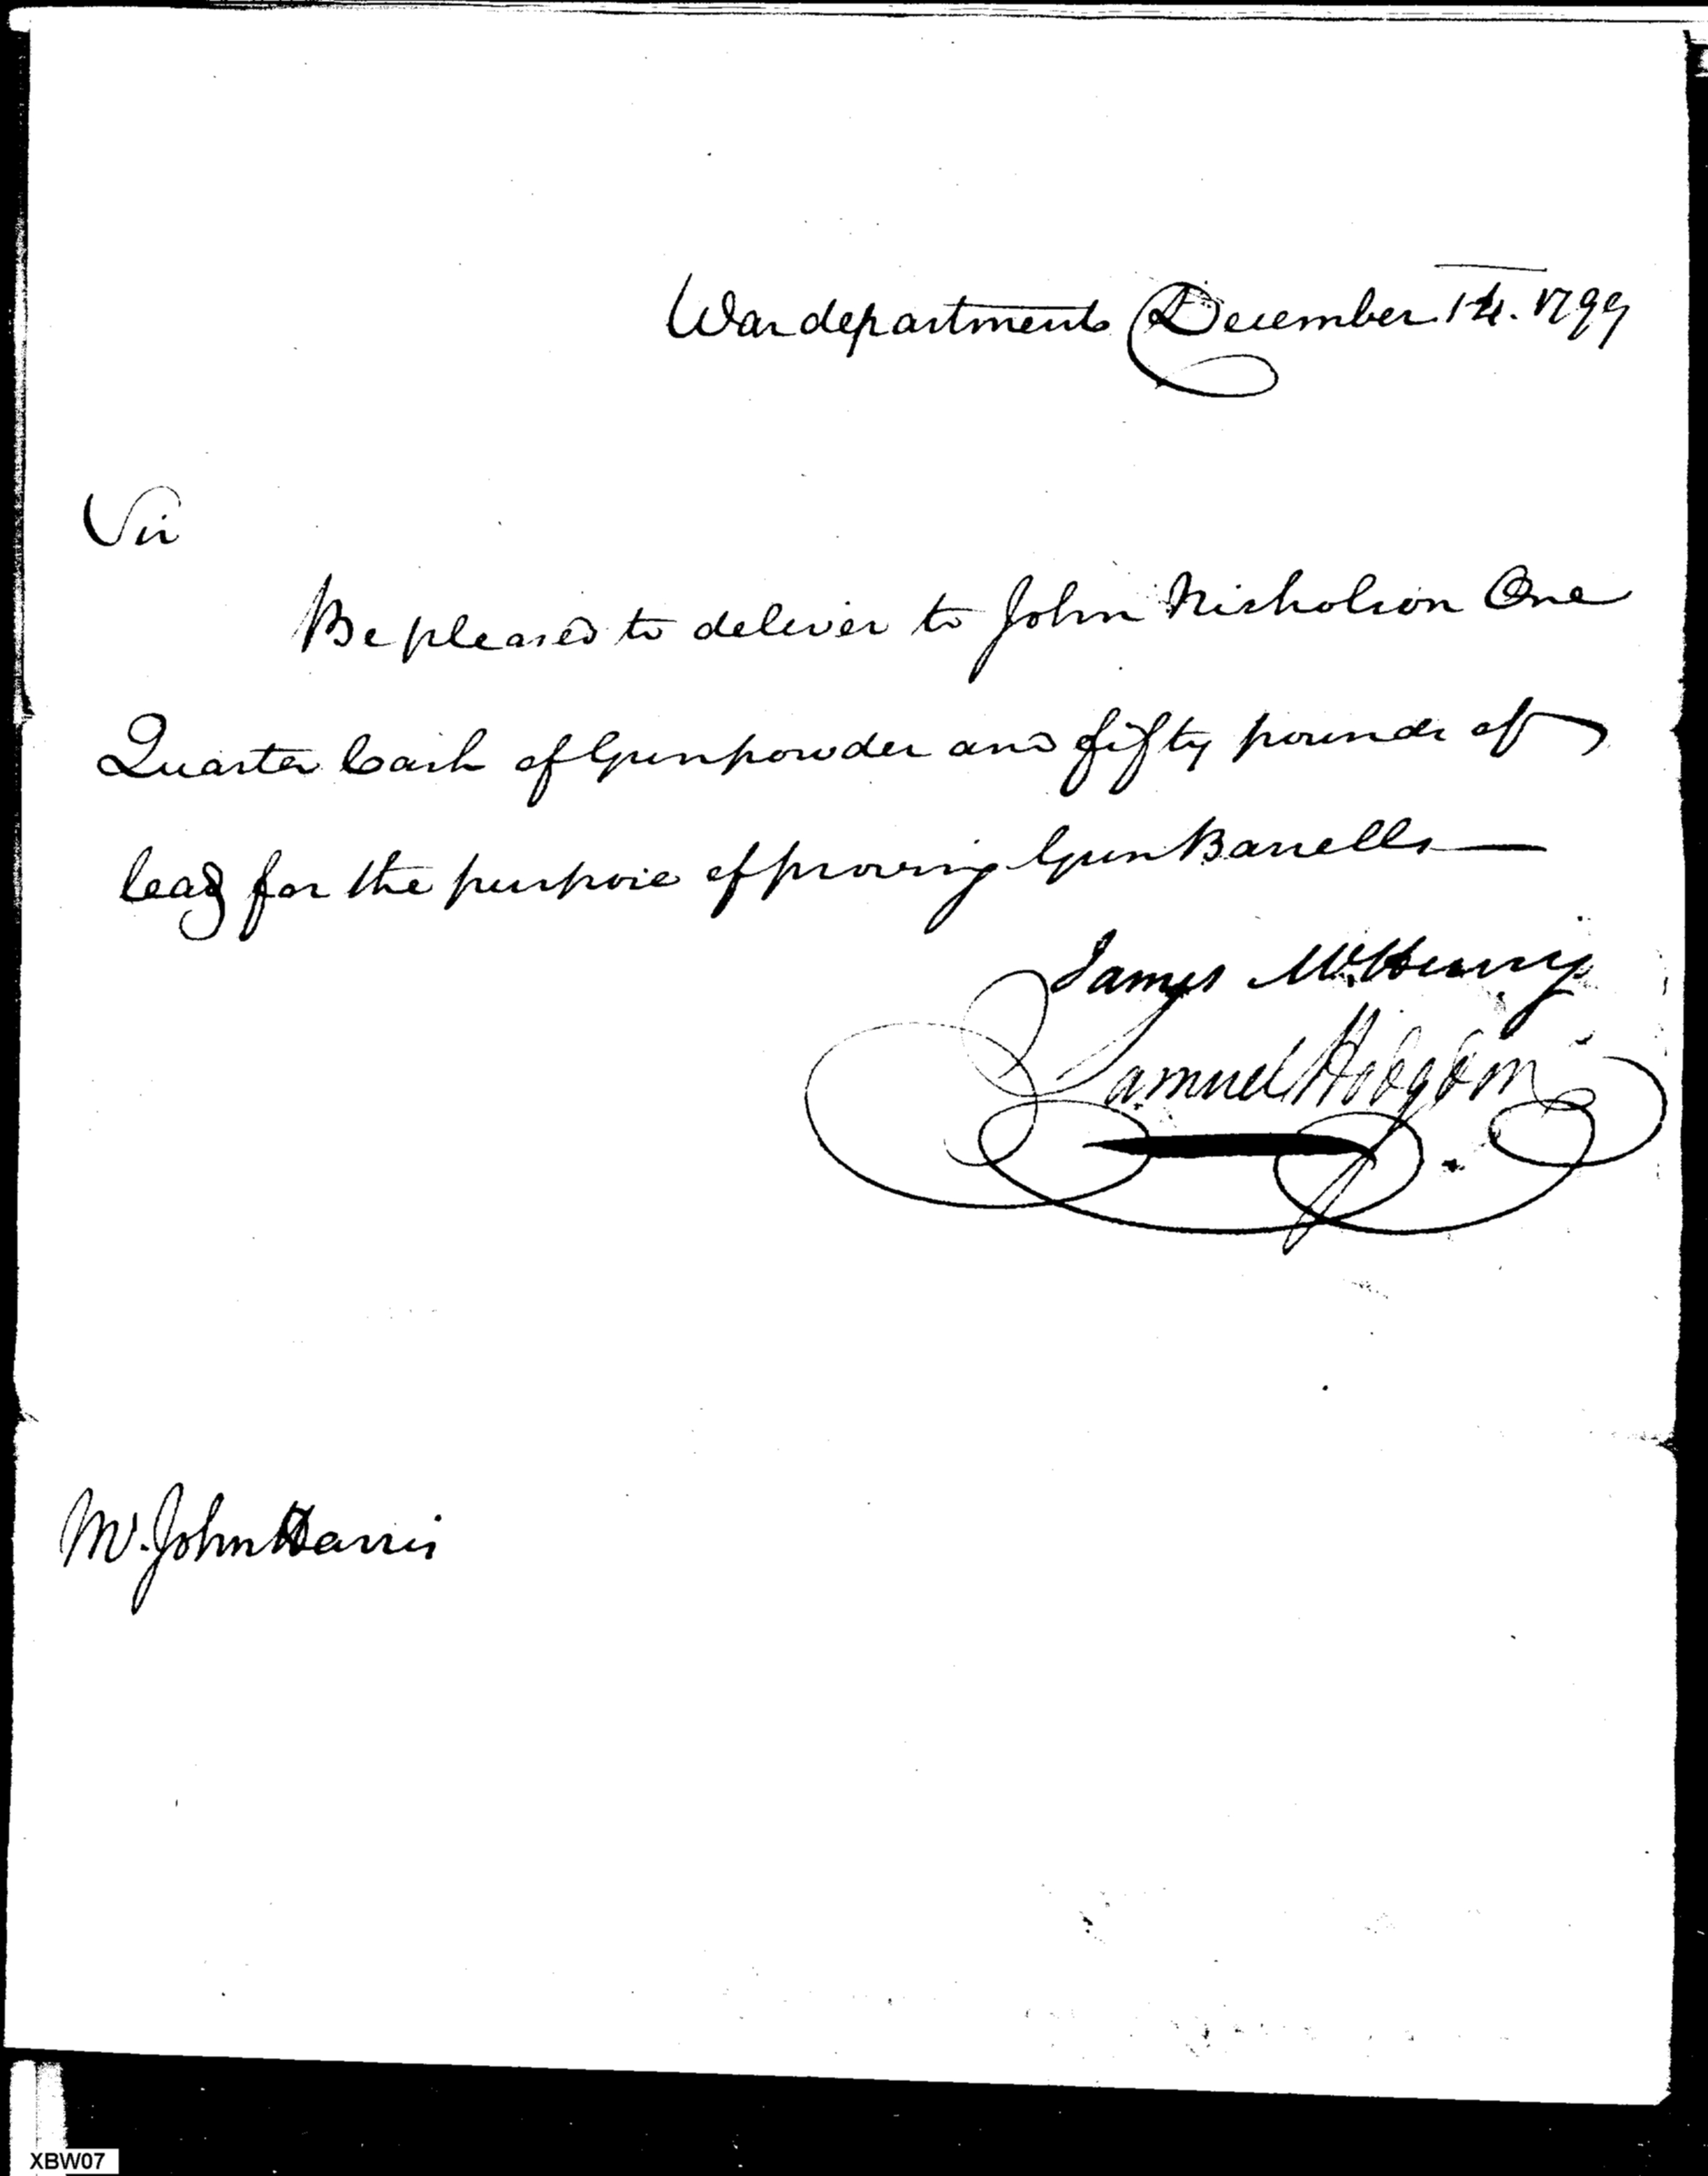 War department December 14. 1799
Sir
Be pleased to deliver to John Nicholson One
Quarter Cask of Gunpowder and fifty pounds of
lead for the purpose of proving Gun Barrells—
James McHenry
Samuel Hodgdon
Mr. John Harris
XBW07